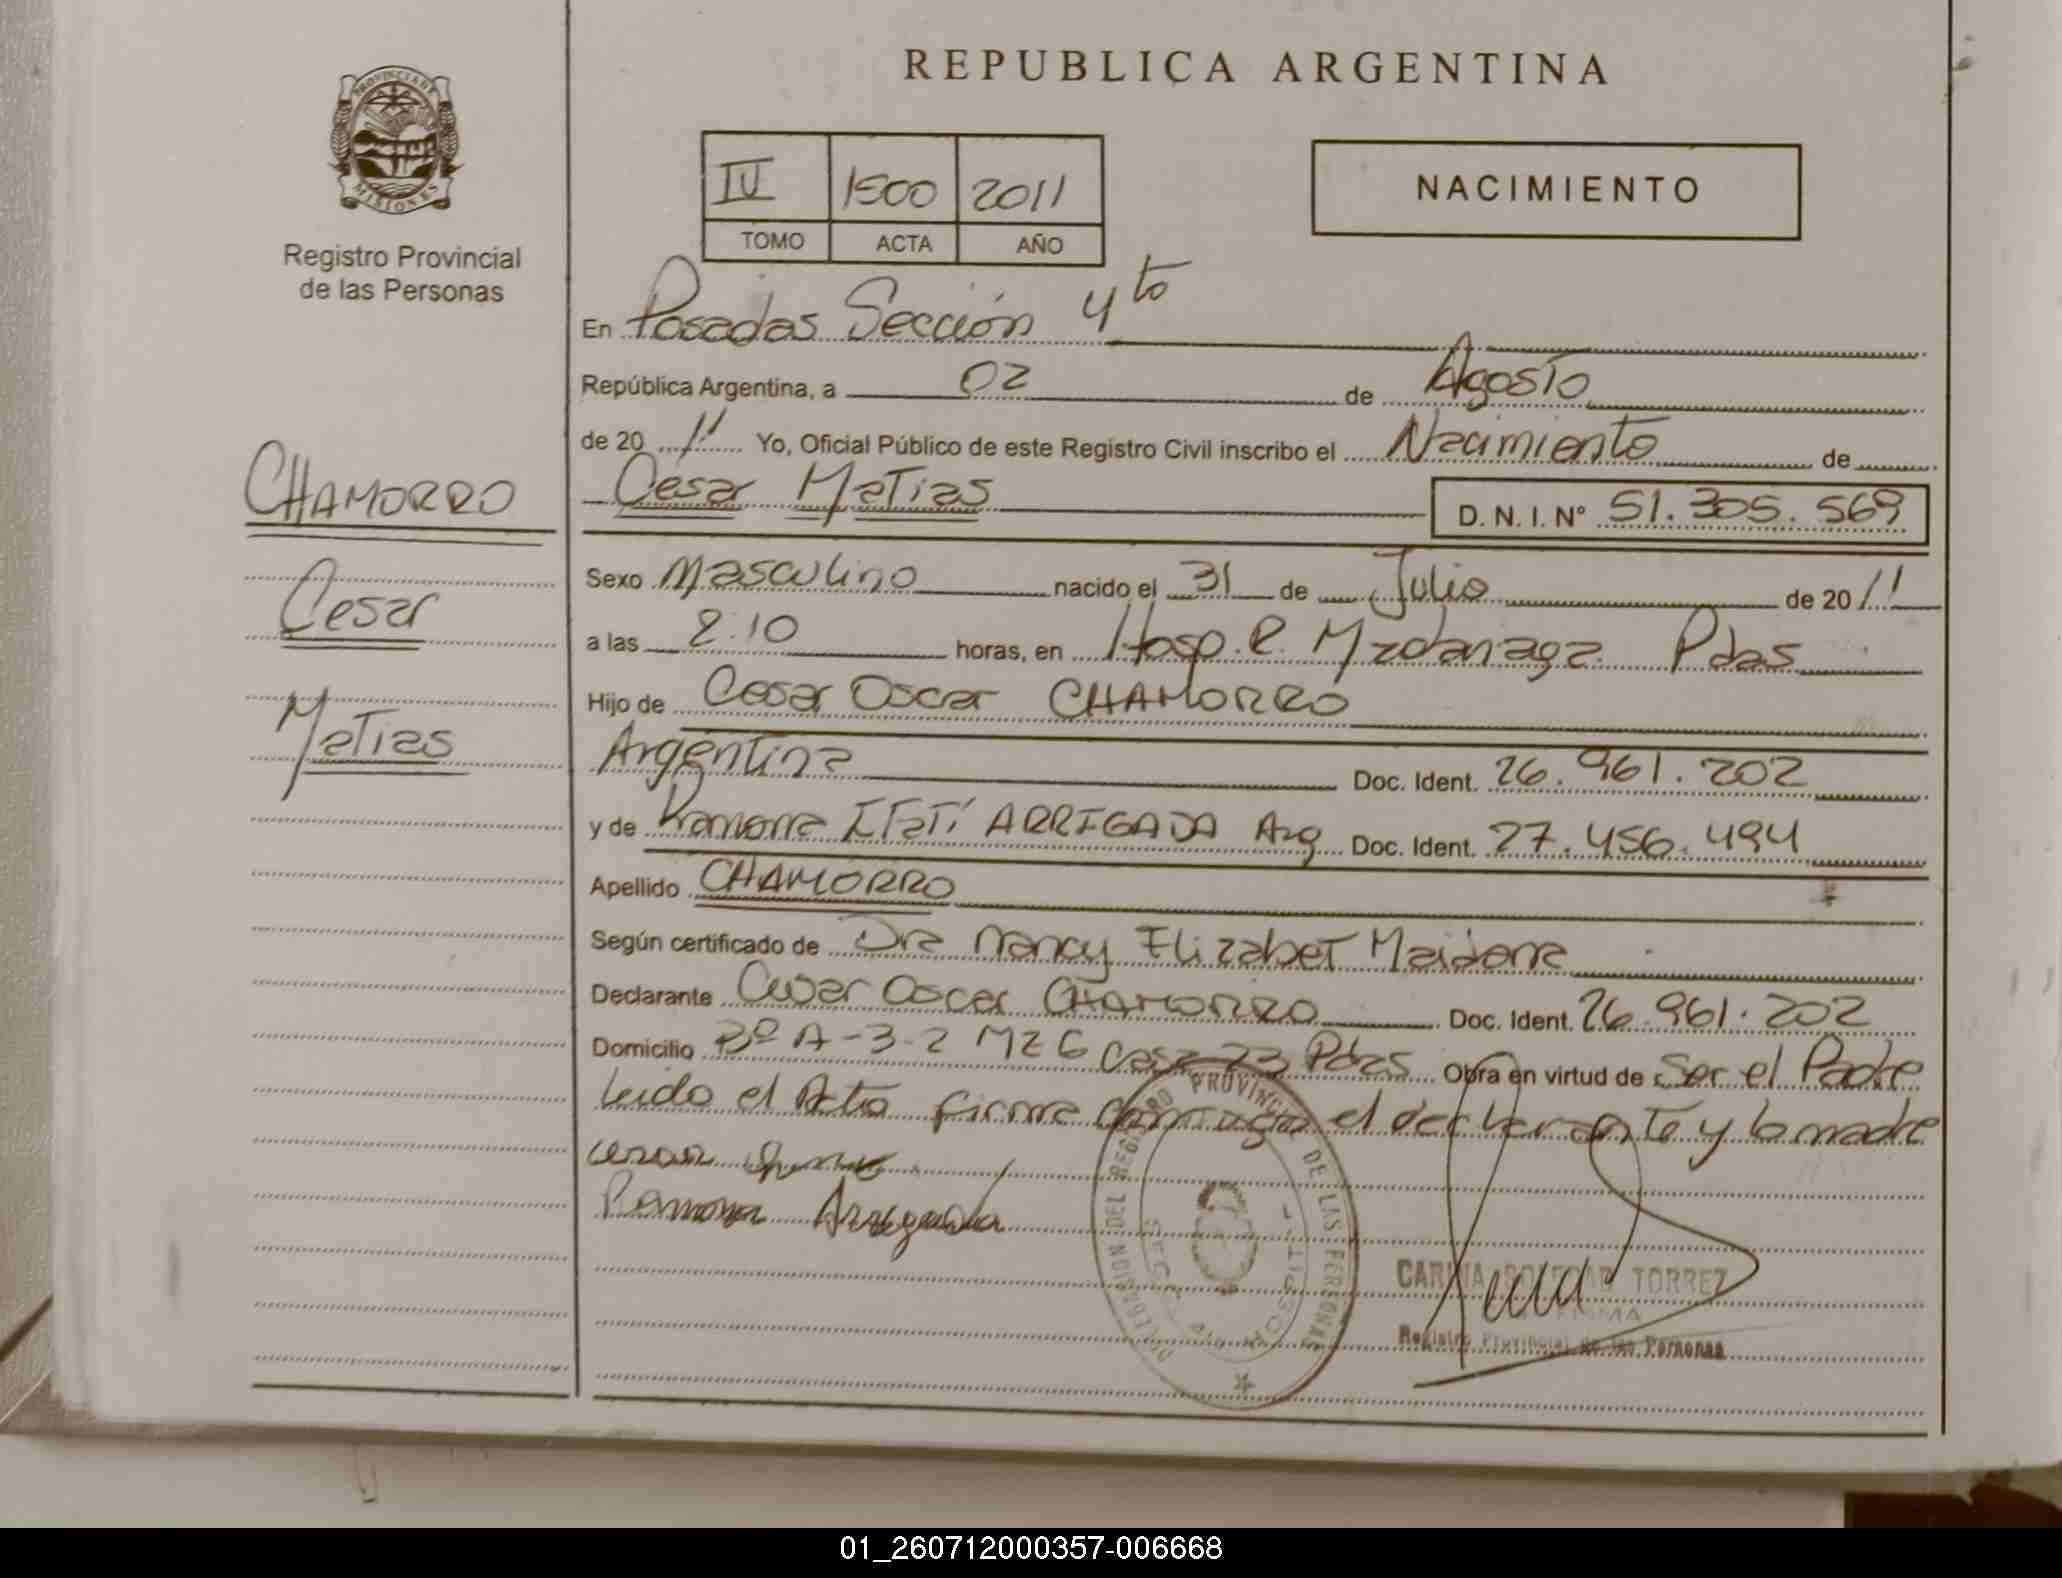 PROVINCIA DE
MISIONES
Registro Provincial
de las Personas
CHAMORRO
Cesar
Matias
REPUBLICA ARGENTINA
IV 1500 2011
TOMO ACTA AÑO
NACIMIENTO
En Posadas Sección 4to
República Argentina, a 02 de Agosto
de 20 11 Yo, Oficial Público de este Registro Civil inscribo el Nacimiento de
Cesar Matias D. N. I. Nº 51.305.569
Sexo Masculino nacido el 31 de Julio de 20 11
a las 2:10 horas, en Hosp. R. Madariaga Pdas
Hijo de Cesar Oscar CHAMORRO
Argentina Doc. Ident. 26.961.202
y de Ramona ITATÍ ARREGADA Arg Doc. Ident. 27.456.494
Apellido CHAMORRO
Según certificado de Dra Nancy Elizabet Maidana
Declarante Cesar Oscar CHAMORRO Doc. Ident. 26.961.202
Domicilio Bº A-3-2 MZ 6 Casa 23 Pdas Obra en virtud de Ser el Padre
Leido el Acta firma conmigo el declarante y la madre
Ramona Arregada
DELEGACION DEL REGISTRO PROVINCIAL DE LAS PERSONAS
CARINA SOLEDAD TORREZ
Registro Provincial de las Personas
01_260712000357-006668